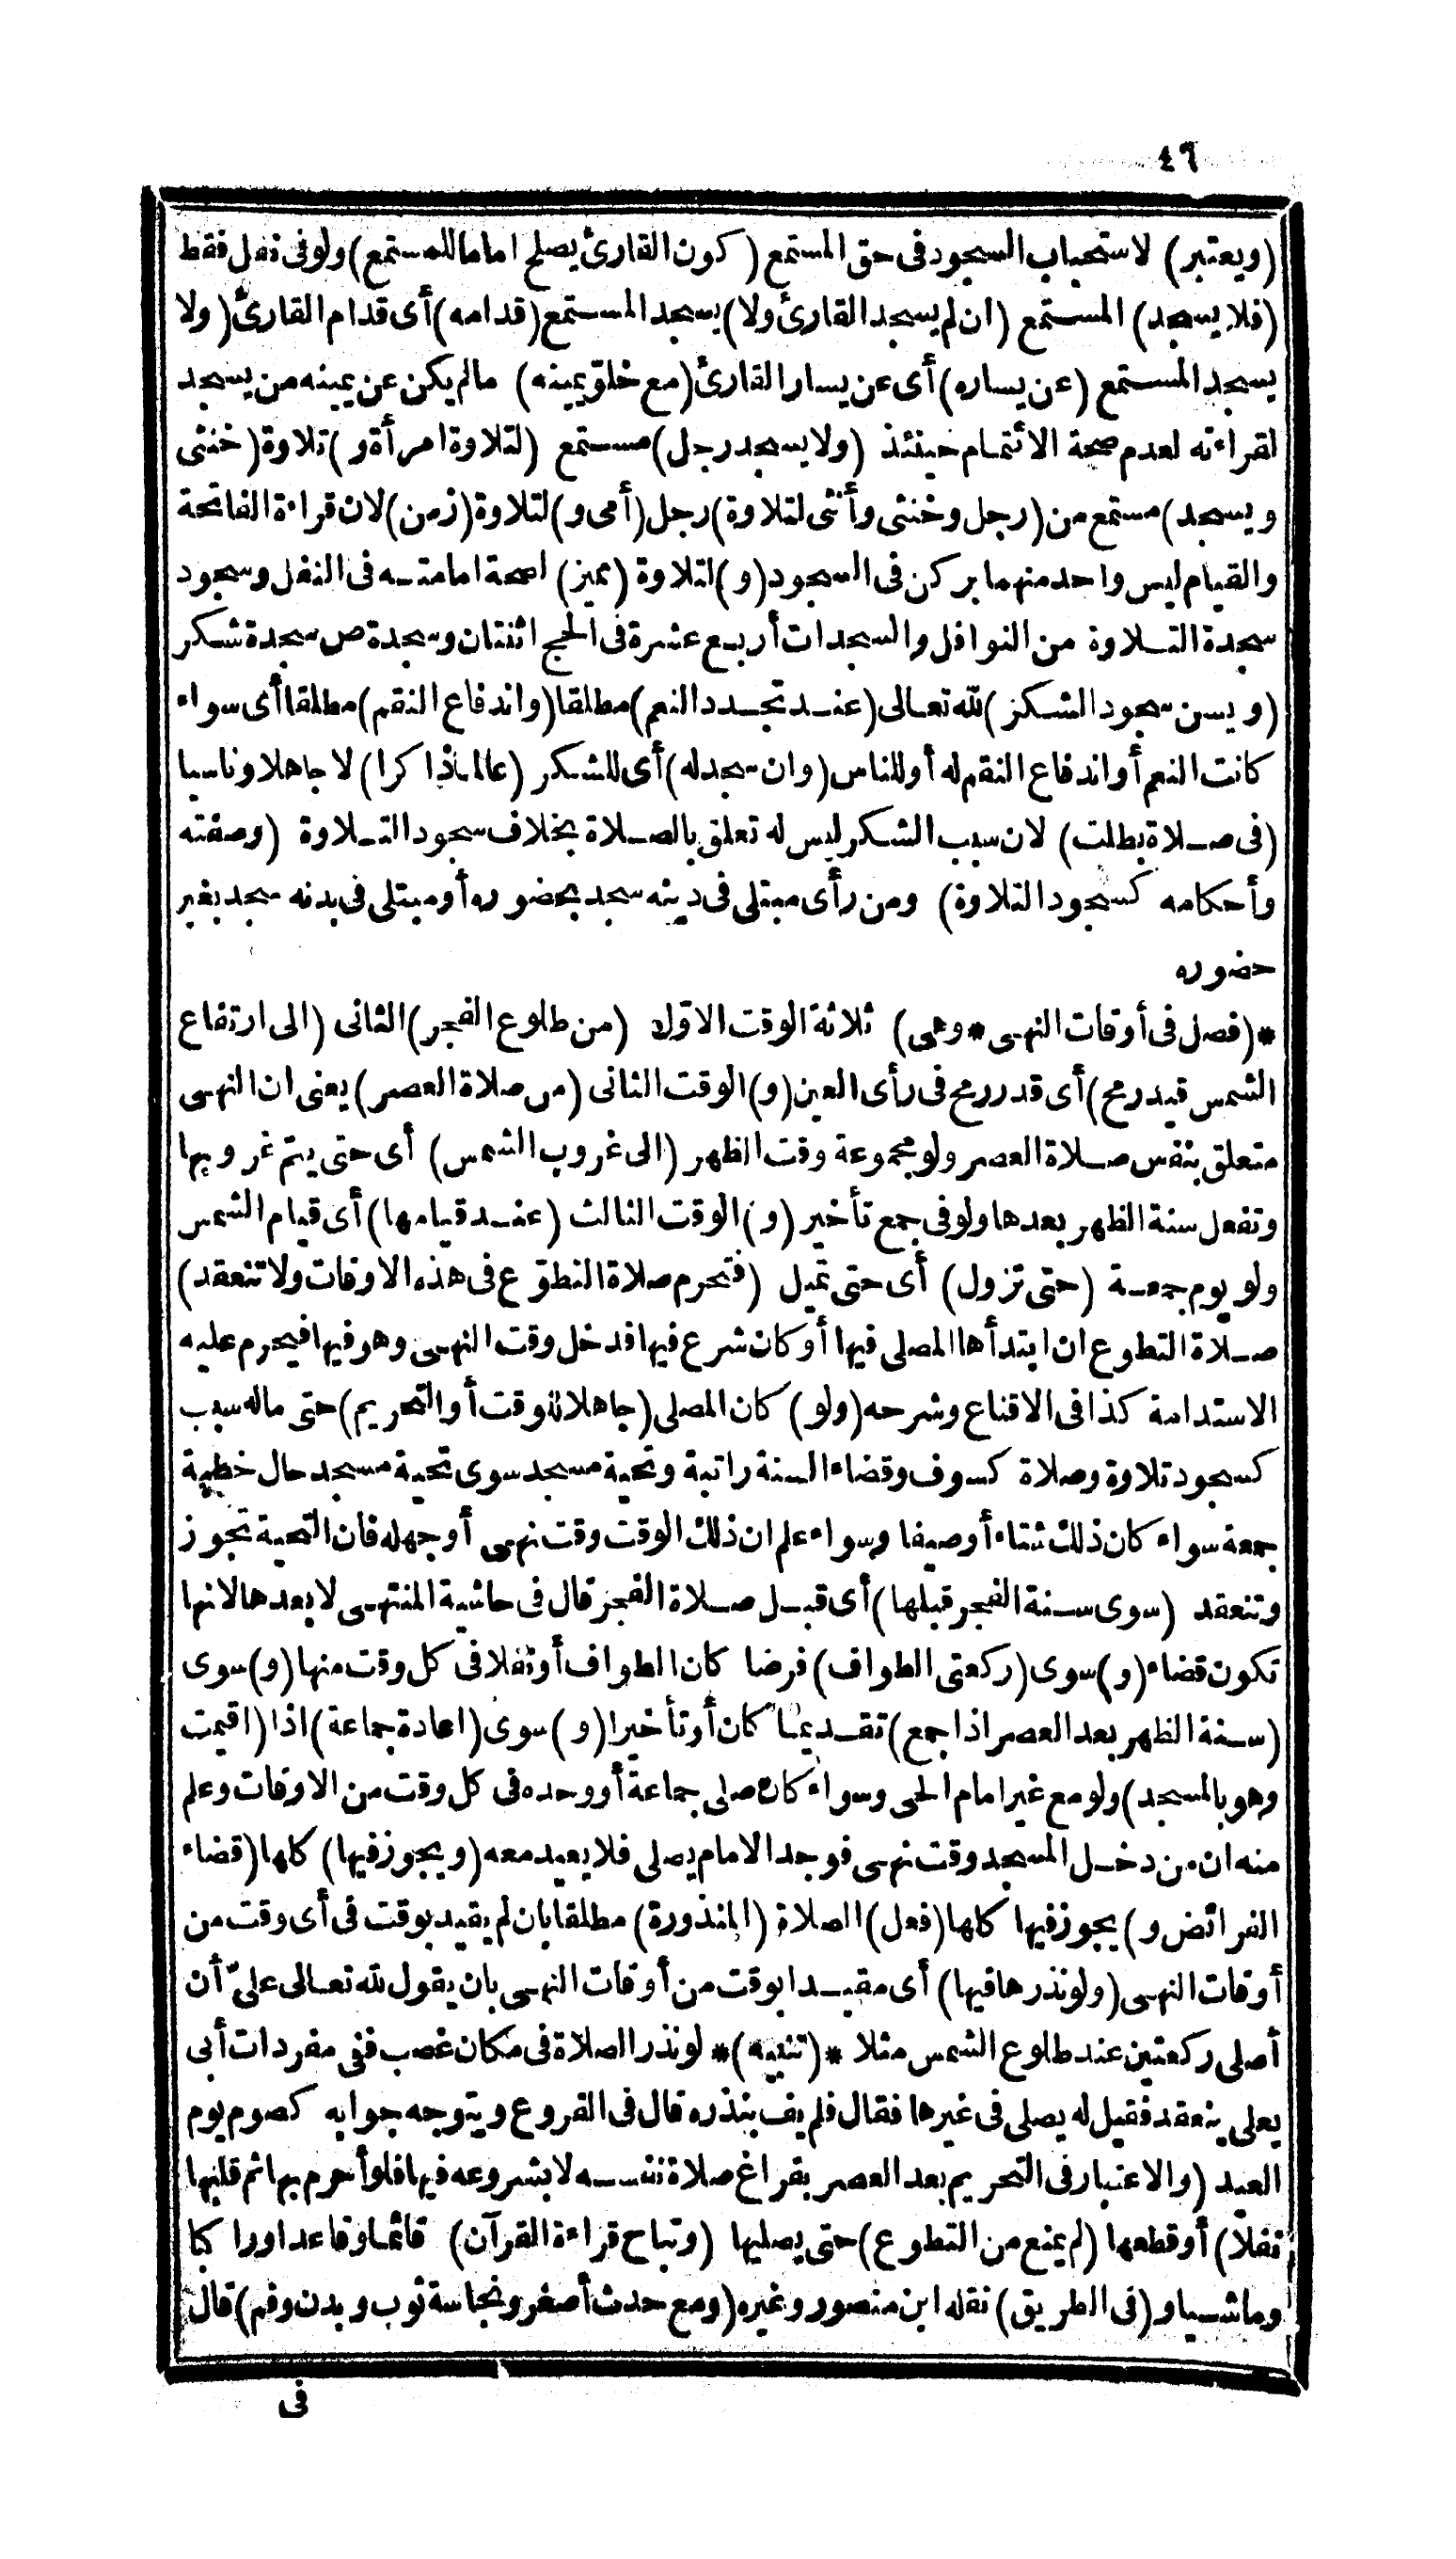 ٤٦
(ويعتبر) لاستحباب السجود فى حق المستمع (كون القارئ يصلح اماما للمستمع) ولو فى نفل فقط
(فلا يسجد) المستمع (ان لم يسجد القارئ ولا) يسجد المستمع (قدامه) أى قدام القارئ (ولا
يسجد المستمع (عن يساره) أى عن يسار القارئ (مع خلوّ يمينه) مالم يكن عن يمينه من يسجد
لقراءته لعدم صحة الائتمام حينئذ (ولا يسجد رجل) مستمع (لتلاوة امرأة و) تلاوة (خنثى
ويسجد) مستمع من (رجل وخنثى وأنثى لتلاوة) رجل (أمى و) لتلاوة (زمن) لان قراءة الفاتحة
والقيام ليس واحد منهما بركن فى السجود (و) لتلاوة (مميز) لصحة امامته فى النفل وسجود
سجدة التلاوة من النوافل والسجدات أربع عشرة فى الحج اثنتان وسجدة ص سجدة شكر
(ويسن سجود الشكر) لله تعالى (عند تجدد النعم) مطلقا (واندفاع النقم) مطلقا أى سواء
كانت النعم أو اندفاع النقم له أو للناس (وان سجد له) أى للشكر (عالما ذاكرا) لا جاهلا وناسيا
(فى صلاة بطلت) لان سبب الشكر ليس له تعلق بالصلاة بخلاف سجود التلاوة (وصفته
وأحكامه كسجود التلاوة) ومن رأى مبتلى فى دينه سجد بحضوره أو مبتلى فى بدنه سجد بغير
حضوره
*(فصل فى أوقات النهى * وهى) ثلاثة الوقت الاوّل (من طلوع الفجر) الثانى (الى ارتفاع
الشمس قيد رمح) أى قدر رمح فى رأى العين (و) الوقت الثانى (من صلاة العصر) يعنى ان النهى
متعلق بنفس صلاة العصر ولو مجموعة وقت الظهر (الى غروب الشمس) أى حتى يتم غروبها
وتفعل سنة الظهر بعدها ولو فى جمع تأخير (و) الوقت الثالث (عند قيامها) أى قيام الشمس
ولو يوم جمعة (حتى تزول) أى حتى تميل (فتحرم صلاة التطوّع فى هذه الاوقات ولا تنعقد)
صلاة التطوع ان ابتدأها المصلى فيها أو كان شرع فيها فدخل وقت النهى وهو فيها فيحرم عليه
الاستدامة كذا فى الاقناع وشرحه (ولو) كان المصلى (جاهلا للوقت أو التحريم) حتى ماله سبب
كسجود تلاوة وصلاة كسوف وقضاء السنة راتبة وتحية مسجد سوى تحية مسجد حال خطبة
جمعة سواء كان ذلك شتاء أو صيفا وسواء علم ان ذلك الوقت وقت نهى أو جهله فان التحية تجوز
وتنعقد (سوى سنة الفجر قبلها) أى قبل صلاة الفجر قال فى حاشية المنتهى لا بعدها لانها
تكون قضاء (و) سوى (ركعتى الطواف) فرضا كان الطواف أو نفلا فى كل وقت منها (و) سوى
(سنة الظهر بعد العصر اذا جمع) تقديما كان أو تأخيرا (و) سوى (اعادة جماعة) اذا (اقيمت
وهو بالمسجد) ولو مع غير امام الحى وسواء كان صلى جماعة أو وحده فى كل وقت من الاوقات وعلم
منه ان من دخل المسجد وقت نهى فوجد الامام يصلى فلا يعيد معه (ويجوز فيها) كلها (قضاء
الفرائض و) يجوز فيها كلها (فعل) الصلاة (المنذورة) مطلقا بان لم يقيد بوقت فى أى وقت من
أوقات النهى (ولو نذرها فيها) أى مقيدا بوقت من أوقات النهى بان يقول لله تعالى علىّ أن
أصلى ركعتين عند طلوع الشمس مثلا *(تنبيه)* لو نذر الصلاة فى مكان غصب ففى مفردات أبى
يعلى ينعقد فقيل له يصلى فى غيرها فقال فلم يف بنذره قال فى الفروع ويتوجه جوابه كصوم يوم
العيد (والاعتبار فى التحريم بعد العصر بفراغ صلاة نفسه لا بشروعه فيها فلو أحرم بها ثم قلبها
نفلا) أو قطعها (لم يمنع من التطوع) حتى يصليها (وتباح قراءة القرآن) قائما وقاعدا وراكبا
وماشيا و(فى الطريق) نقله ابن منصور وغيره (ومع حدث أصغر ونجاسة ثوب وبدن وفم) قال
فى